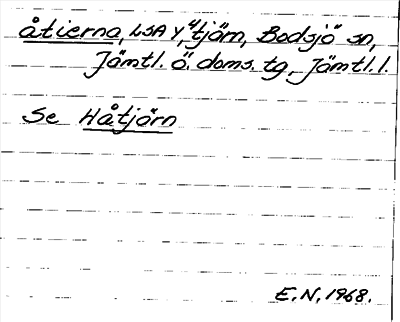 åtierna, LSA Y, 41 tjärn, Bodsjö sn,
Jämtl. ö. doms. tg, Jämtl. l.
Se Håtjärn
E.N. 1968.